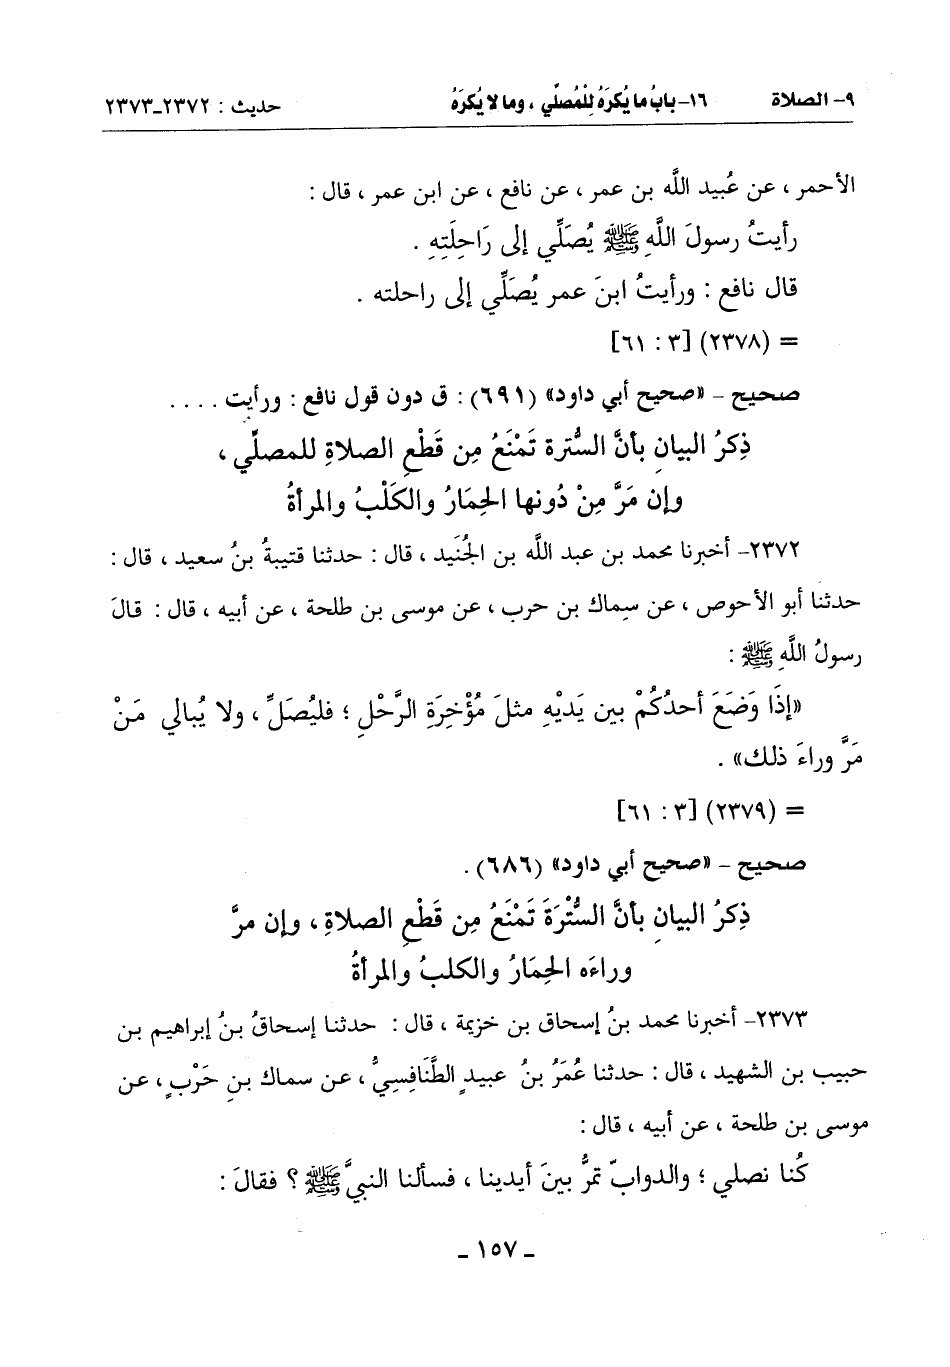 ٩- الصلاة ١٦- بابُ ما يُكرَهُ لِلْمُصلِّي ، وما لا يُكرَهُ حديث : ٢٣٧٢-٢٣٧٣
الأحمر ، عن عُبيد اللَّه بن عمر ، عن نافع ، عن ابن عمر ، قال :
رأيتُ رسولَ اللَّهِ ﷺ يُصَلِّي إلى رَاحِلَتِهِ .
قال نافع : ورأيتُ ابنَ عمر يُصَلِّي إلى راحلته .
= (٢٣٧٨) [٣ : ٦١]
صحيح - «صحيح أبي داود» (٦٩١) : ق دون قول نافع : ورأيت . . . .
ذِكرُ البيانِ بأنَّ السُّترة تَمْنَعُ مِن قَطْعِ الصلاةِ للمصلِّي ،
وإن مَرَّ مِنْ دُونها الحِمَارُ والكَلْبُ والمرأةُ
٢٣٧٢- أخبرنا محمد بن عبد اللَّه بن الجُنَيد ، قال : حدثنا قتيبةُ بنُ سعيد ، قال :
حدثنا أبو الأحوص ، عن سِماك بن حرب ، عن موسى بن طلحة ، عن أبيه ، قال : قالَ
رسولُ اللَّهِ ﷺ :
«إذَا وَضَعَ أحدُكُمْ بين يَديْهِ مثلَ مُؤْخِرَةِ الرَّحْلِ ؛ فليُصَلِّ ، ولا يُبالي مَنْ
مَرَّ وراءَ ذلك» .
= (٢٣٧٩) [٣ : ٦١]
صحيح - «صحيح أبي داود» (٦٨٦) .
ذِكرُ البيانِ بأنَّ السُّتْرَةَ تَمْنَعُ مِن قَطْعِ الصلاةِ ، وإن مرَّ
وراءَه الحِمَارُ والكلبُ والمرأةُ
٢٣٧٣- أخبرنا محمد بنُ إسحاق بن خزيمة ، قال : حدثنا إسحاقُ بنُ إبراهيم بن
حبيب بن الشهيد ، قال : حدثنا عُمَرُ بنُ عبيدٍ الطَّنَافِسِيُّ ، عن سماك بنِ حَرْبٍ ، عن
موسى بن طلحة ، عن أبيه ، قال :
كُنا نصلي ؛ والدوابّ تمرُّ بينَ أيدينا ، فسألنا النبيَّ ﷺ ؟ فقالَ :
- ١٥٧ -